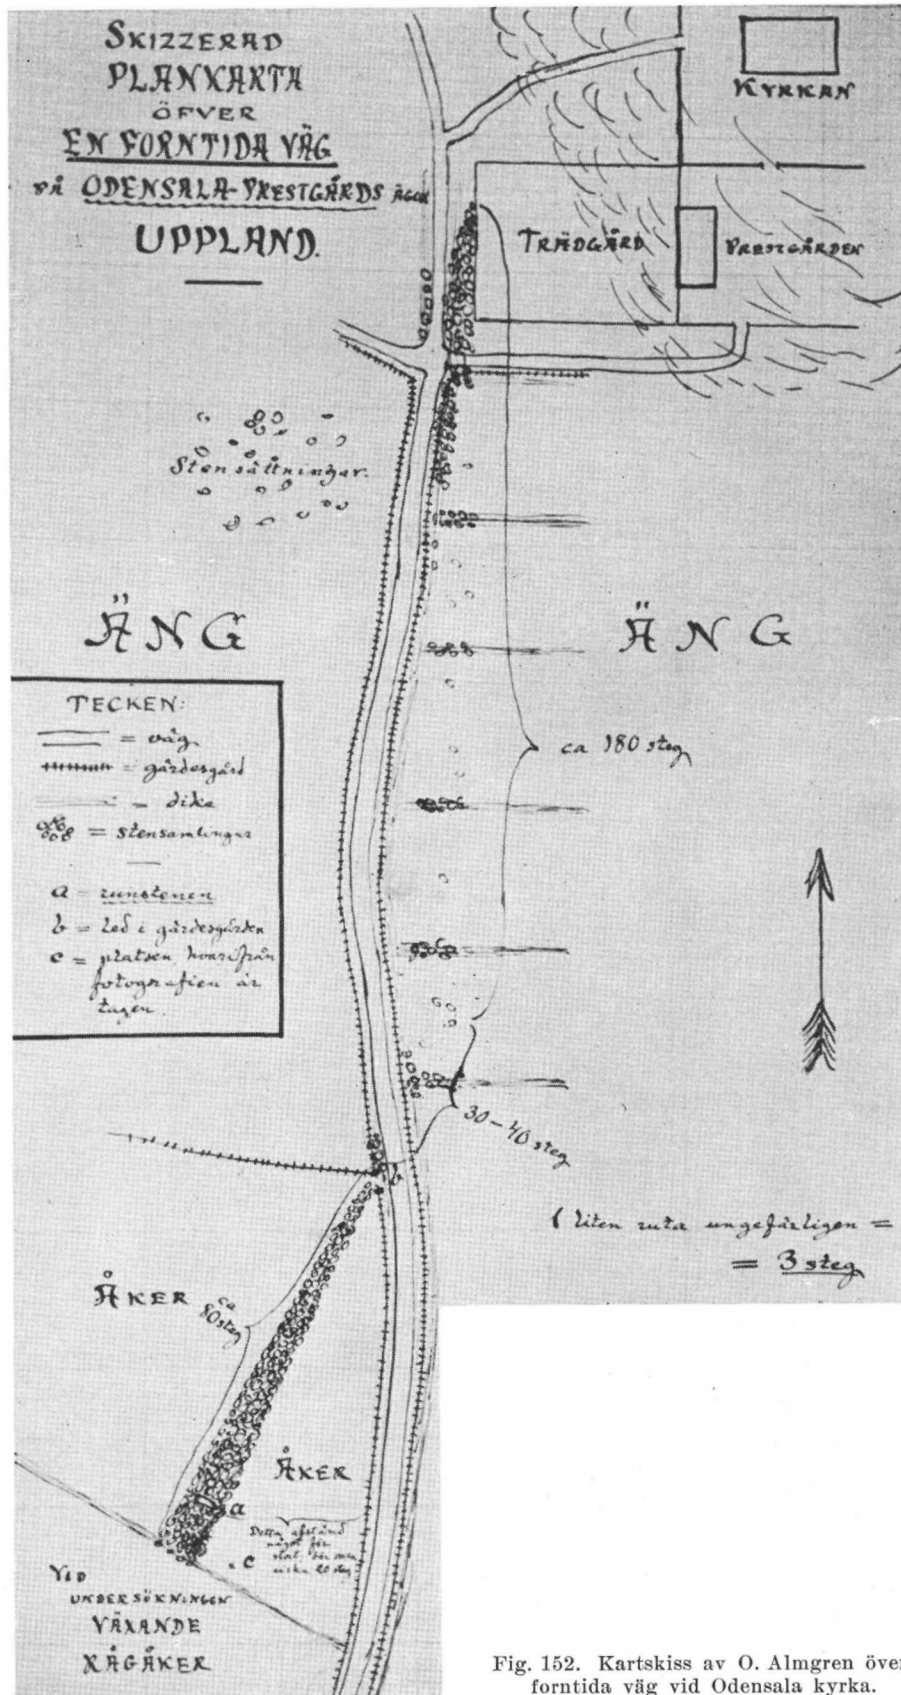 SKIZZERAD
PLANKARTA
ÖFVER
EN FORNTIDA VÄG
PÅ ODENSALA-PRESTGÅRDS ÄGOR
UPPLAND.
KYRKAN
TRÄDGÅRD
PRESTGÅRDEN
Stensättningar.
ÄNG
ÄNG
TECKEN:
= väg
= gärdesgård
= dike
= stensamlingar
a = runstenen
b = Led i gärdesgården
c = platsen, hvarifrån
fotografien är
tagen.
ca 180 steg
30-40 steg
1 liten ruta ungefärligen =
= 3 steg
ÅKER
ca
80 steg
b
ÅKER
a
Detta afstånd
något för
stort, bör vara
cirka 20 steg
c
VID
UNDERSÖKNINGEN
VÄXANDE
RÅGÅKER
Fig. 152. Kartskiss av O. Almgren över
forntida väg vid Odensala kyrka.